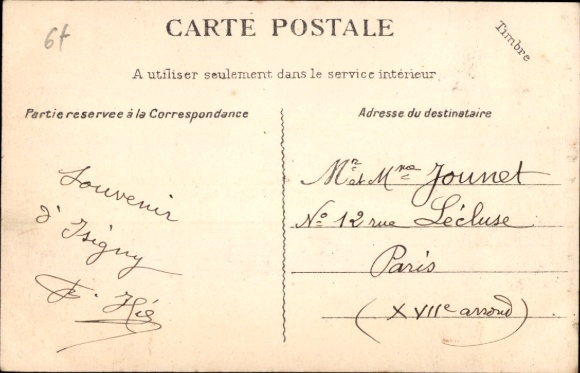 6f
CARTE POSTALE
Timbre
A utiliser seulement dans le service intérieur
Partie reservee à la Correspondance
Adresse du destinataire
Souvenir
d'Isigny
Mr et Mme Jounet
No 12 rue Lécluse
Paris
(XVIIe arrond)